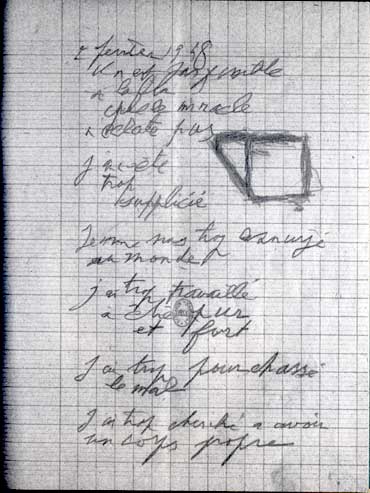 2 février 1948
Il n'est pas possible
a la fin
que le miracle
n eclate pas
j ai été
trop
supplicié
Je me suis trop ennuyé
au monde
j ai trop travaillé
a être pur
et fort
J ai trop pourchassé
le mal
J ai trop cherché a avoir
un corps propre